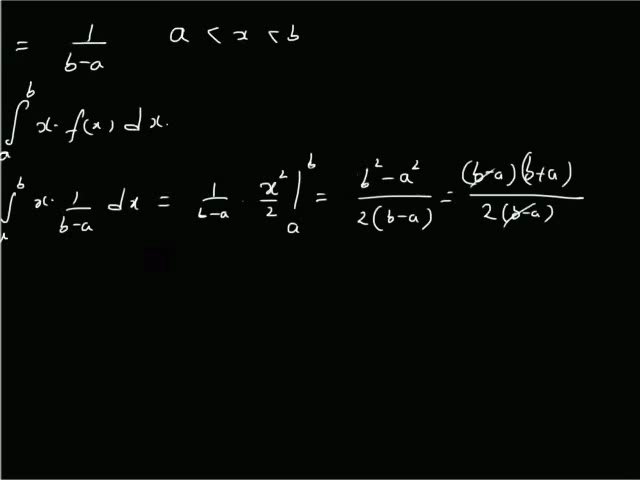 = 1/(b-a) a < x < b
∫_a^b x. f(x) dx.
∫_a^b x. 1/(b-a) dx = 1/(b-a) . x²/2 |_a^b = (b²-a²)/(2(b-a)) = ((b-a)(b+a))/(2(b-a))